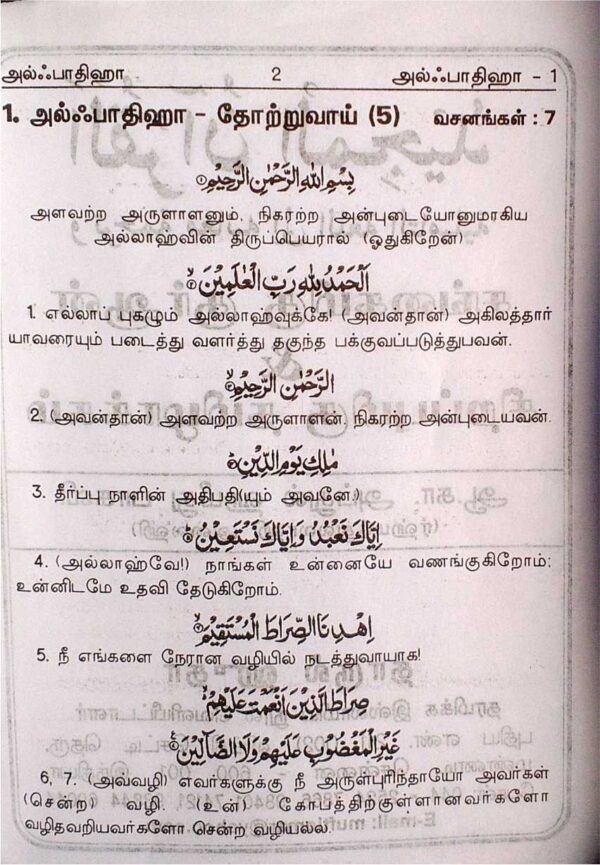 அல்ஃபாதிஹா 2 அல்ஃபாதிஹா - 1
1. அல்ஃபாதிஹா - தோற்றுவாய் (5) வசனங்கள் : 7
بِسْمِ اللهِ الرَّحْمٰنِ الرَّحِيْمِ
அளவற்ற அருளாளனும், நிகரற்ற அன்புடையோனுமாகிய
அல்லாஹ்வின் திருப்பெயரால் (ஓதுகிறேன்)
اَلْحَمْدُ لِلّٰهِ رَبِّ الْعٰلَمِيْنَ
1. எல்லாப் புகழும் அல்லாஹ்வுக்கே! (அவன்தான்) அகிலத்தார்
யாவரையும் படைத்து வளர்த்து தகுந்த பக்குவப்படுத்துபவன்.
الرَّحْمٰنِ الرَّحِيْمِ
2. (அவன்தான்) அளவற்ற அருளாளன், நிகரற்ற அன்புடையவன்.
مٰلِكِ يَوْمِ الدِّيْنِ
3. தீர்ப்பு நாளின் அதிபதி(யும் அவனே.)
اِيَّاكَ نَعْبُدُ وَاِيَّاكَ نَسْتَعِيْنُ
4. (அல்லாஹ்வே!) நாங்கள் உன்னையே வணங்குகிறோம்;
உன்னிடமே உதவி தேடுகிறோம்.
اِهْدِنَا الصِّرَاطَ الْمُسْتَقِيْمَ
5. நீ எங்களை நேரான வழியில் நடத்துவாயாக!
صِرَاطَ الَّذِيْنَ اَنْعَمْتَ عَلَيْهِمْ
غَيْرِ الْمَغْضُوْبِ عَلَيْهِمْ وَلَا الضَّآلِّيْنَ
6, 7. (அவ்வழி) எவர்களுக்கு நீ அருள்புரிந்தாயோ அவர்கள்
(சென்ற) வழி. (உன்) கோபத்திற்குள்ளானவர்களோ
வழிதவறியவர்களோ சென்ற வழியல்ல.